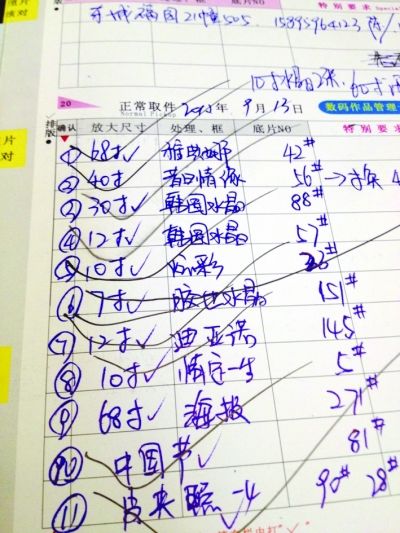 15895964123
特别要求 Special
10寸水晶2张. 60寸
20 正常取件 2013年 9月13日 数码作品管理
Normal Pickup
排版 确认 放大尺寸 处理、框 底片NO 特别要求
① 68寸✓ 雅典娜 42#
② 40寸 昔日情缘 56# →换
③ 30寸✓ 韩国水晶 88#
④ 12寸✓ 韩国水晶 57#
⑤ 10寸✓ 炫彩
⑥ 7寸✓ 水晶 151#
⑦ 12寸✓ 迪亚诺 145#
⑧ 10寸✓ 情定一生 5#
⑨ 68寸✓ 海报 271#
⑩ 中国节✓ 81#
⑪ 皮夹照-4 90# 28#